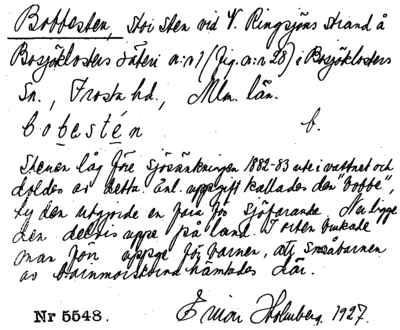 Bobbesten, stor sten vid V. Ringsjöns strand å
Bosjöklosters säteri a:n 1 (fig. a:n 28) i Bosjöklosters
Sn., Frosta hd., Mlm. län.
bobestén b.
Stenen låg före sjösänkningen 1882-83 ute i vattnet och
doldes av detta. Enl. uppgift kallades den "bobbe",
ty den utgjorde en fara för sjöfarande. Nu ligger
den delvis uppe på land. I orten brukade
man förr uppge för barnen, att småbarnen
av barnmorskorna hämtades där.
Nr 5548. Einar Holmberg. 1927.